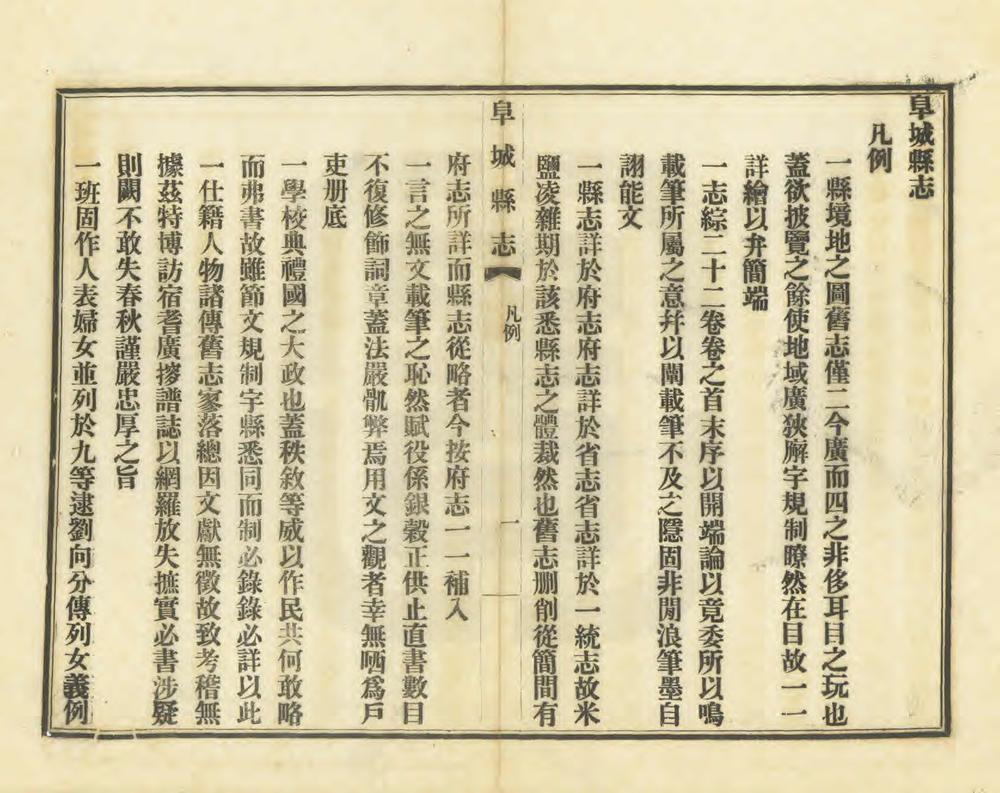 阜城縣志
凡例
一縣境地之圖舊志僅二今廣而四之非侈耳目之玩也
蓋欲披覽之餘使地域廣狹廨宇規制瞭然在目故一一
詳繪以弁簡端
一志綜二十二卷卷之首末序以開端論以竟委所以鳴
載筆所屬之意幷以闡載筆不及之隱固非閒浪筆墨自
詡能文
一縣志詳於府志府志詳於省志省志詳於一統志故米
鹽凌雜期於該悉縣志之體裁然也舊志刪削從簡間有
阜城縣志
凡例
一
府志所詳而縣志從略者今按府志一一補入
一言之無文載筆之恥然賦役係銀穀正供止直書數目
不復修飾詞章蓋法嚴骩弊焉用文之觀者幸無哂爲戶
吏册底
一學校典禮國之大政也蓋秩敘等威以作民共何敢略
而弗書故雖節文規制宇縣悉同而制必錄錄必詳以此
一仕籍人物諸傳舊志寥落總因文獻無徵故致考稽無
據茲特博訪宿耆廣搜譜誌以網羅放失摭實必書涉疑
則闕不敢失春秋謹嚴忠厚之旨
一班固作人表婦女並列於九等逮劉向分傳列女義例